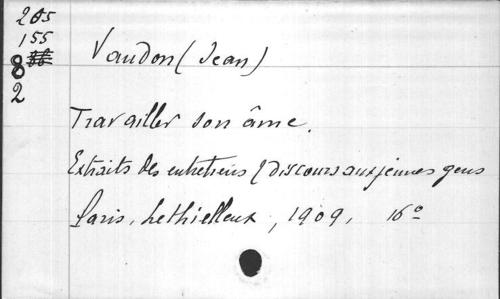 205
155
8
2
Vaudon (Jean)
Travailler son âme.
Extraits des entretiens & discours aux jeunes gens
Paris, Lethielleux, 1909, 16°